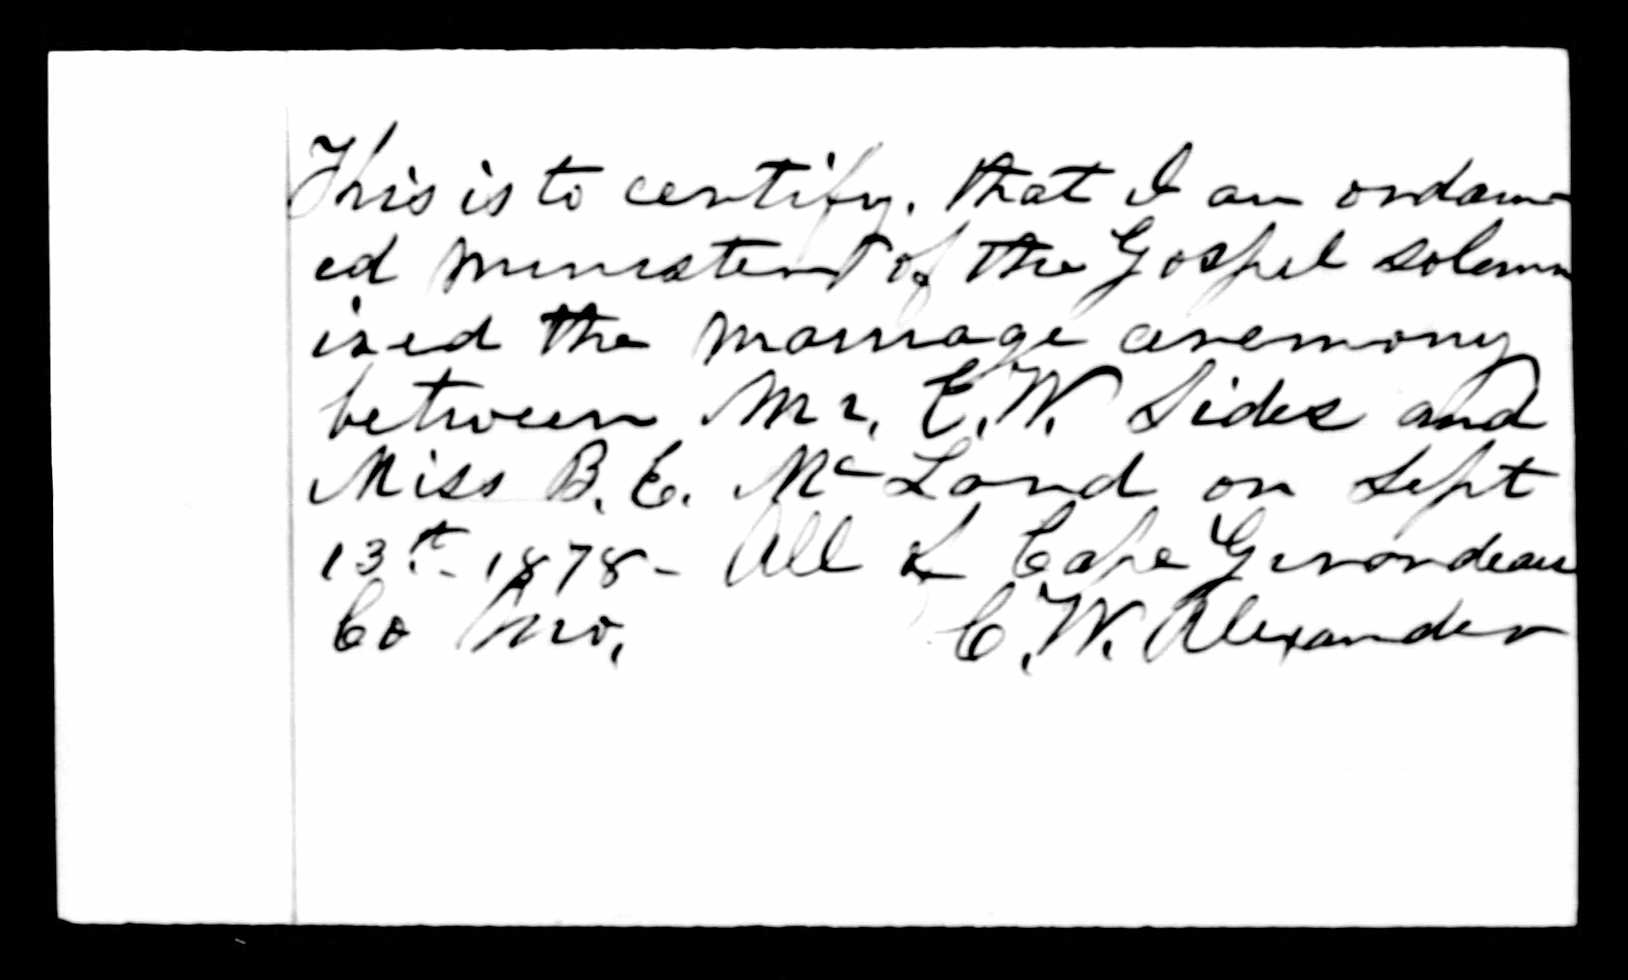 This is to certify. that I an ordain-
ed minister of the Gospel solemn
ized the marriage ceremony
between Mr. C. W. Sides and
Miss B. E. Mc Land on Sept
13th 1878 - All of Cape Girardeau
Co Mo. C. W. Alexander